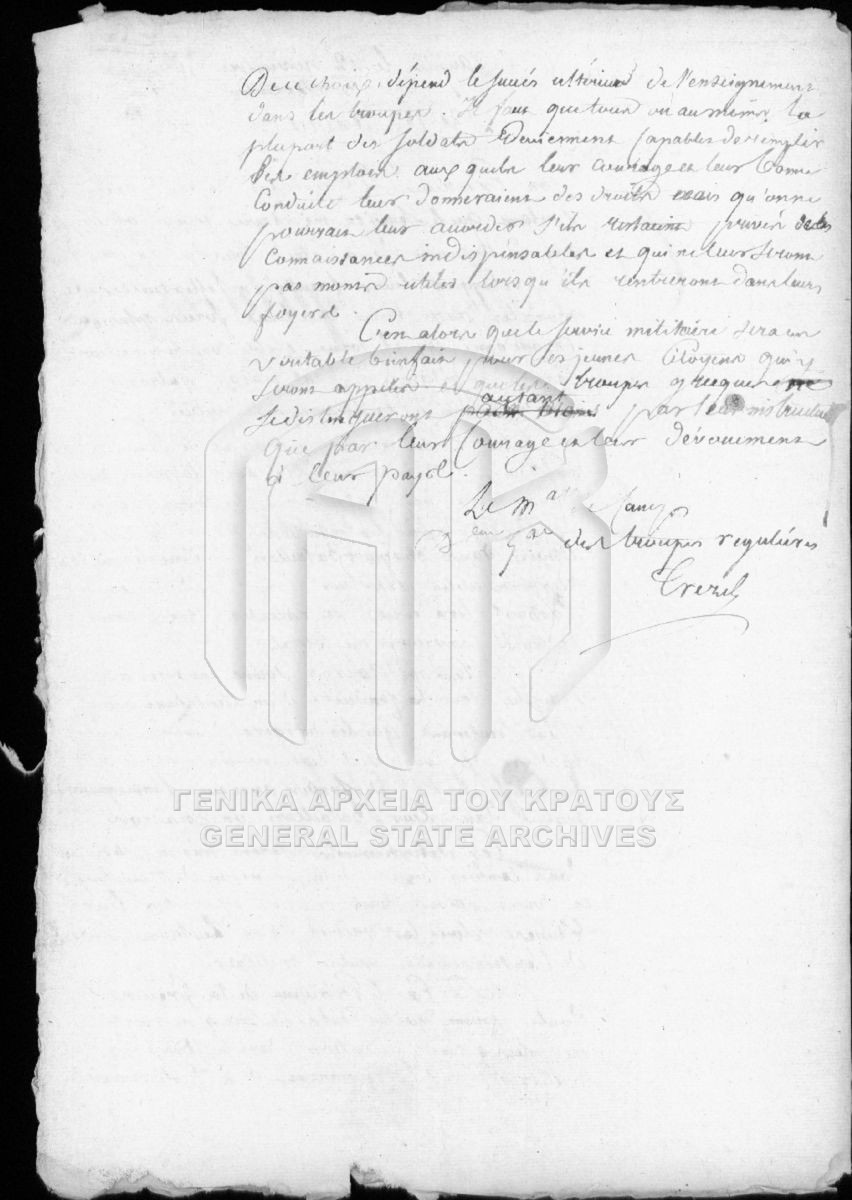 De ce choix, dépend le succés ultérieur de l'enseignement
dans les troupes. Il faut que tous ou au moins la
plupart des soldats deviennent capables de remplir
des emplois auxquels leur courage et leur bonne
conduite leur donneraient des droits mais qu'on ne
pourrait leur accorder s'ils restaient privés de
connaissances indispensables et qui ne leur seront
pas moins utiles lorsqu'ils rentreront dans leurs
foyers.
C'est alors que le service militaire sera un
veritable bienfait pour les jeunes citoyens qui y
seront appellés et que les troupes grecques
se distingueront autant par leur instruction
que par leur courage et leur dévouement
à leur pays.
Le Mal de Camp
des troupes regulières
Trezel
ΓΕΝΙΚΑ ΑΡΧΕΙΑ ΤΟΥ ΚΡΑΤΟΥΣ
GENERAL STATE ARCHIVES